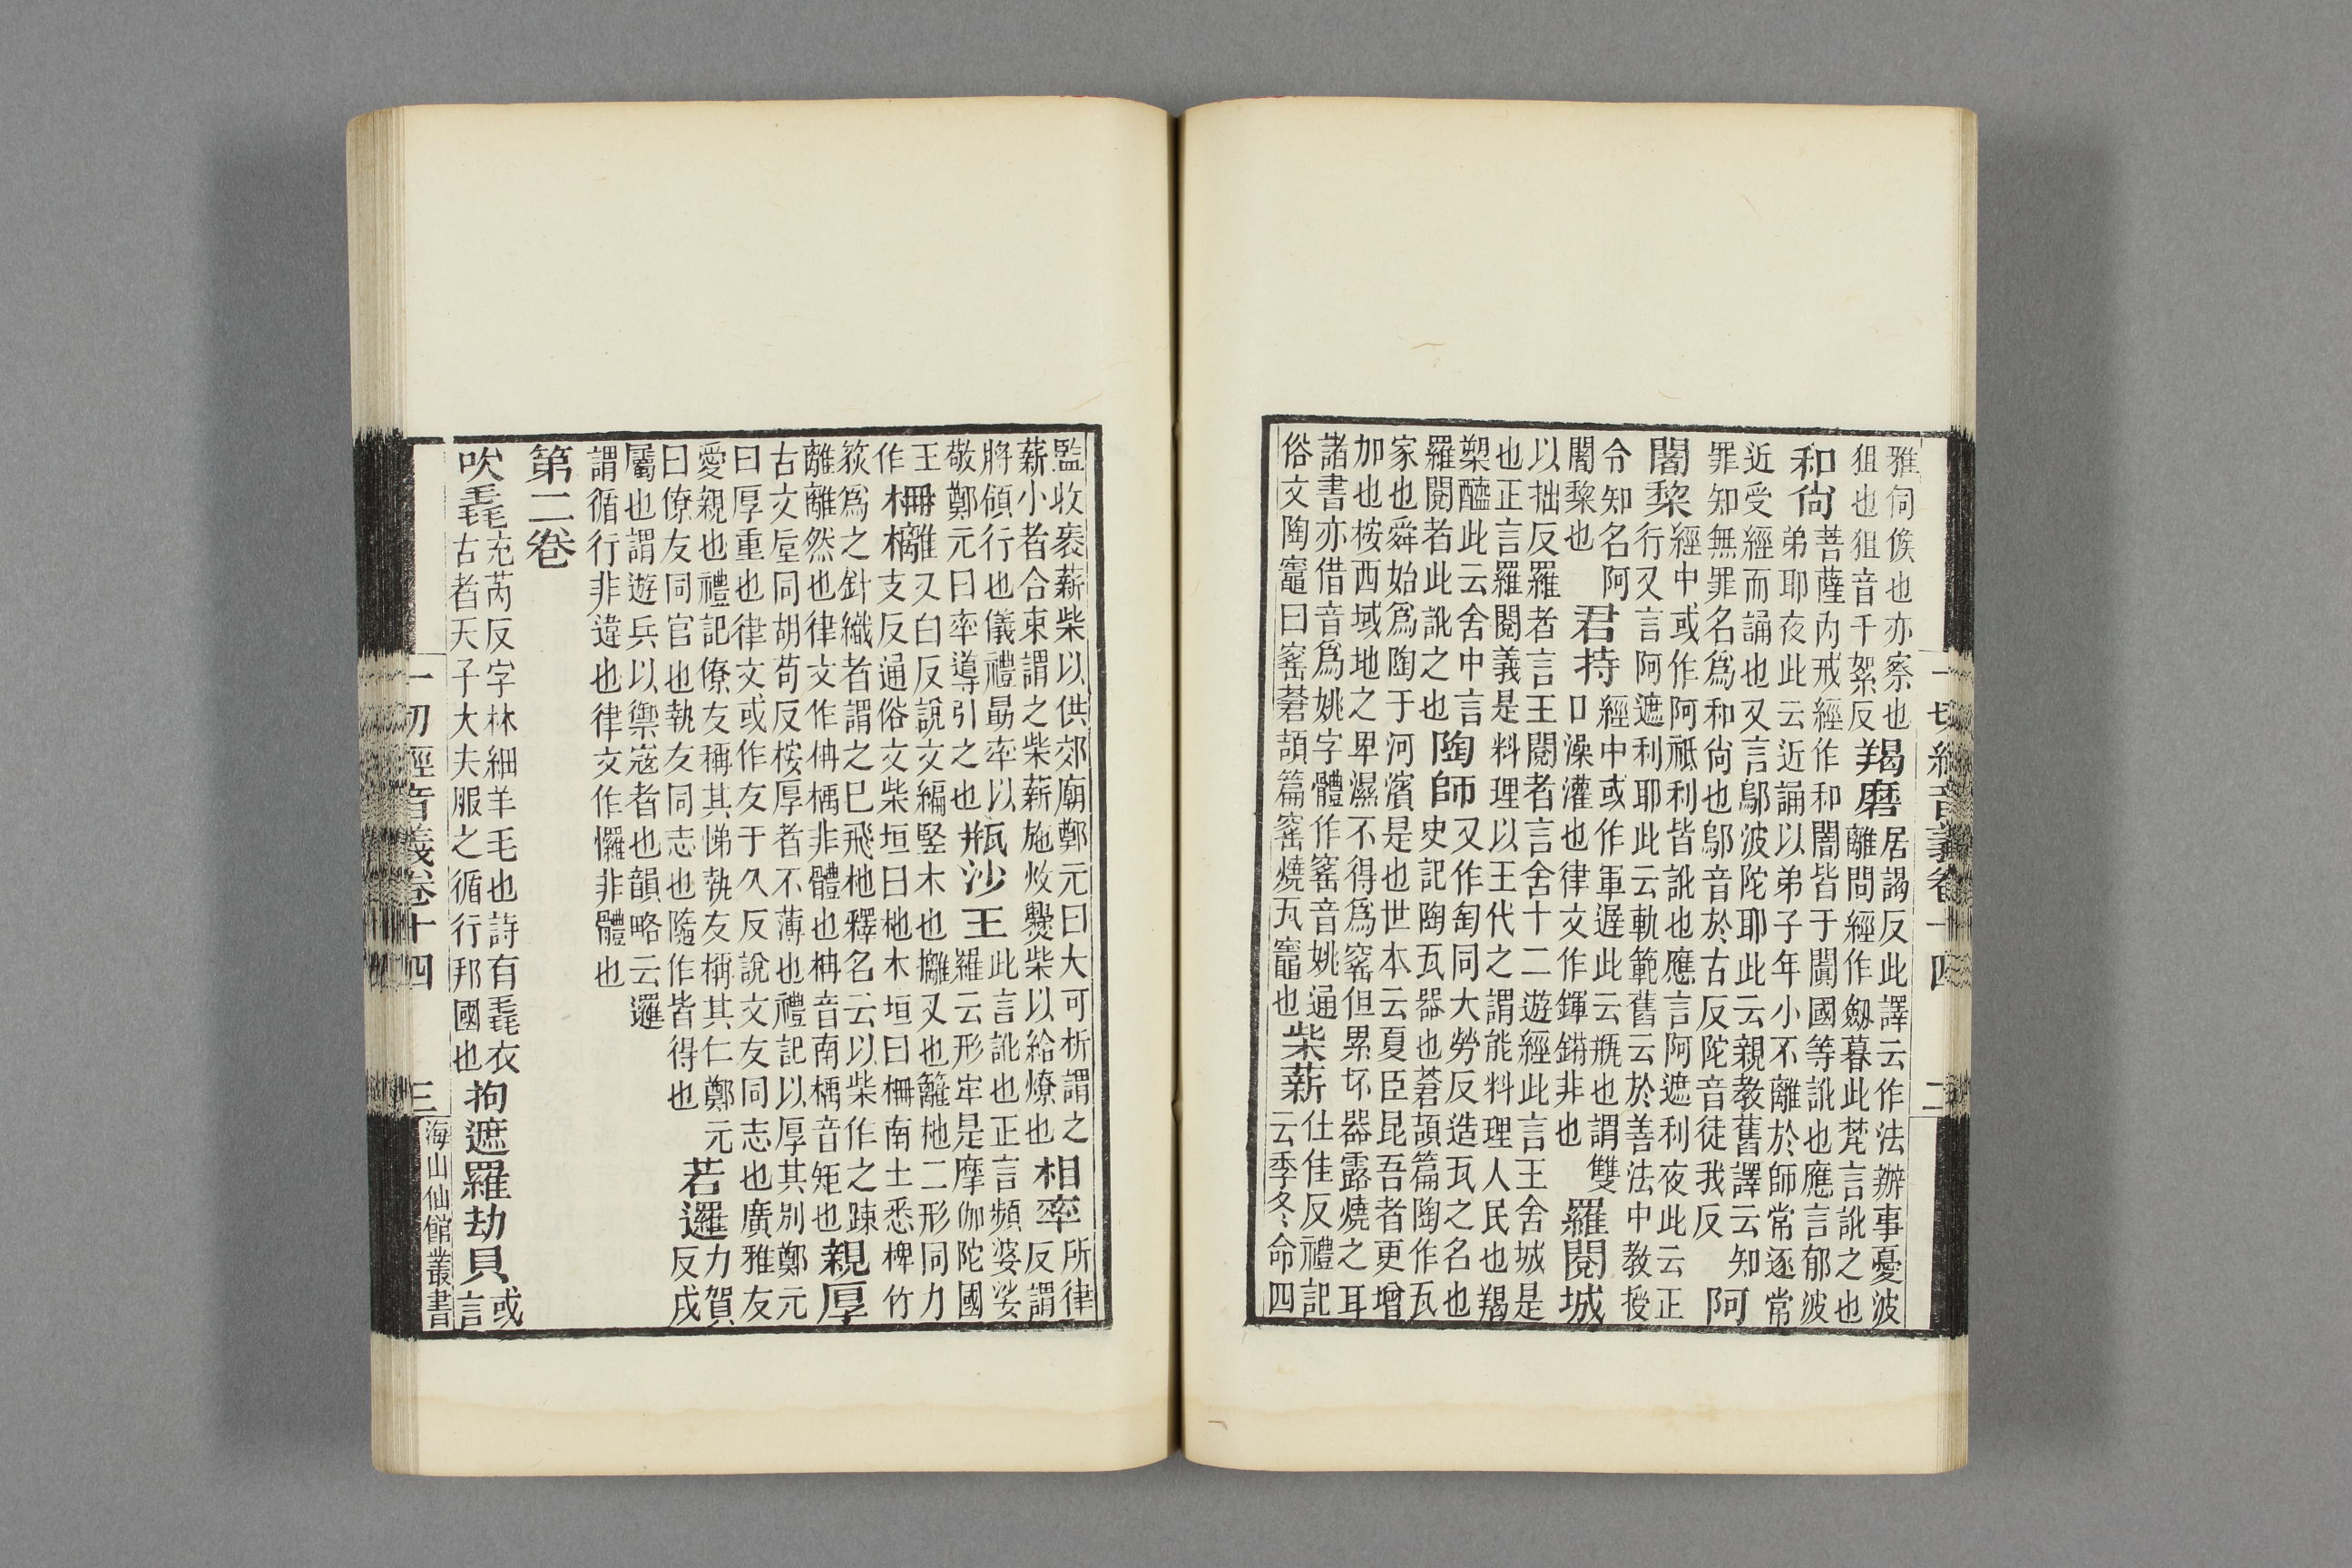 一切經音義卷十四 二
雅伺候也亦察也狙也狙音千絮反羯磨居謁反此譯云作法辦事憂波離問經作劔暮此梵言訛之也
和尙菩薩內戒經作和闍皆于闐國等訛也應言郁波弟耶夜此云近誦以弟子年小不離於師常逐常
近受經而誦也又言鄔波陀耶此云親教舊譯云知罪知無罪名爲和尙也鄔音於古反陀音徒我反阿
闍棃經中或作阿祗利皆訛也應言阿遮利夜此云正行又言阿遮利耶此云軌範舊云於善法中教授
令知名阿闍棃也君持經中或作軍遲此云瓶也謂雙口澡灌也律文作鍕非也羅閱城
以拙反羅者言王閱者言舍十二遊經此言王舍城是也正言羅閱義是料理以王代之謂能料理人民也羯
槊醯此云舍中言羅閱者此訛之也陶師又作匋同大勞反造瓦之名也史記陶瓦器也蒼頡篇陶作瓦
家也舜始爲陶于河濱是也世本云夏臣昆吾者更增加也桉西域地之卑濕不得爲窯但累坏器露燒之耳
諸書亦借音爲姚字體作窰音姚通俗文陶竈曰窯蒼頡篇窯燒瓦竈也柴薪仕佳反禮記云季冬命四
監收袠薪柴以供郊廟鄭元曰大可析謂之薪小者合束謂之柴薪施炊爨柴以給燎也相率所律反謂
將領行也儀禮勗率以敬鄭元曰率導引之也瓶沙王此言訛也正言頻婆娑羅云形牢是摩伽陀國
王作柵又白反說文編竪木也又也籬杝二形同力支反通俗文柴垣曰杝木垣曰柵南土悉椑竹
爲之針織者謂之巴飛杝釋名云以柴作之疎離離然也律文作柟楀非體也柟音南楀音矩也親厚
古文垕同胡苟反桉厚者不薄也禮記以厚其別鄭元曰厚重也律文或作友于久反說文友同志也廣雅友
愛親也禮記僚友稱其悌執友稱其仁鄭元曰僚友同官也執友同志也隨作皆得也若邏力賀反戍
屬也謂遊兵以禦寇者也韻略云邏謂循行非違也律文作儸非體也
第二卷
吹毳充芮反字林細羊毛也詩有毳衣古者天子大夫服之循行邦國也拘遮羅劫貝或言
一切經音義卷十四 三 海山仙館叢書